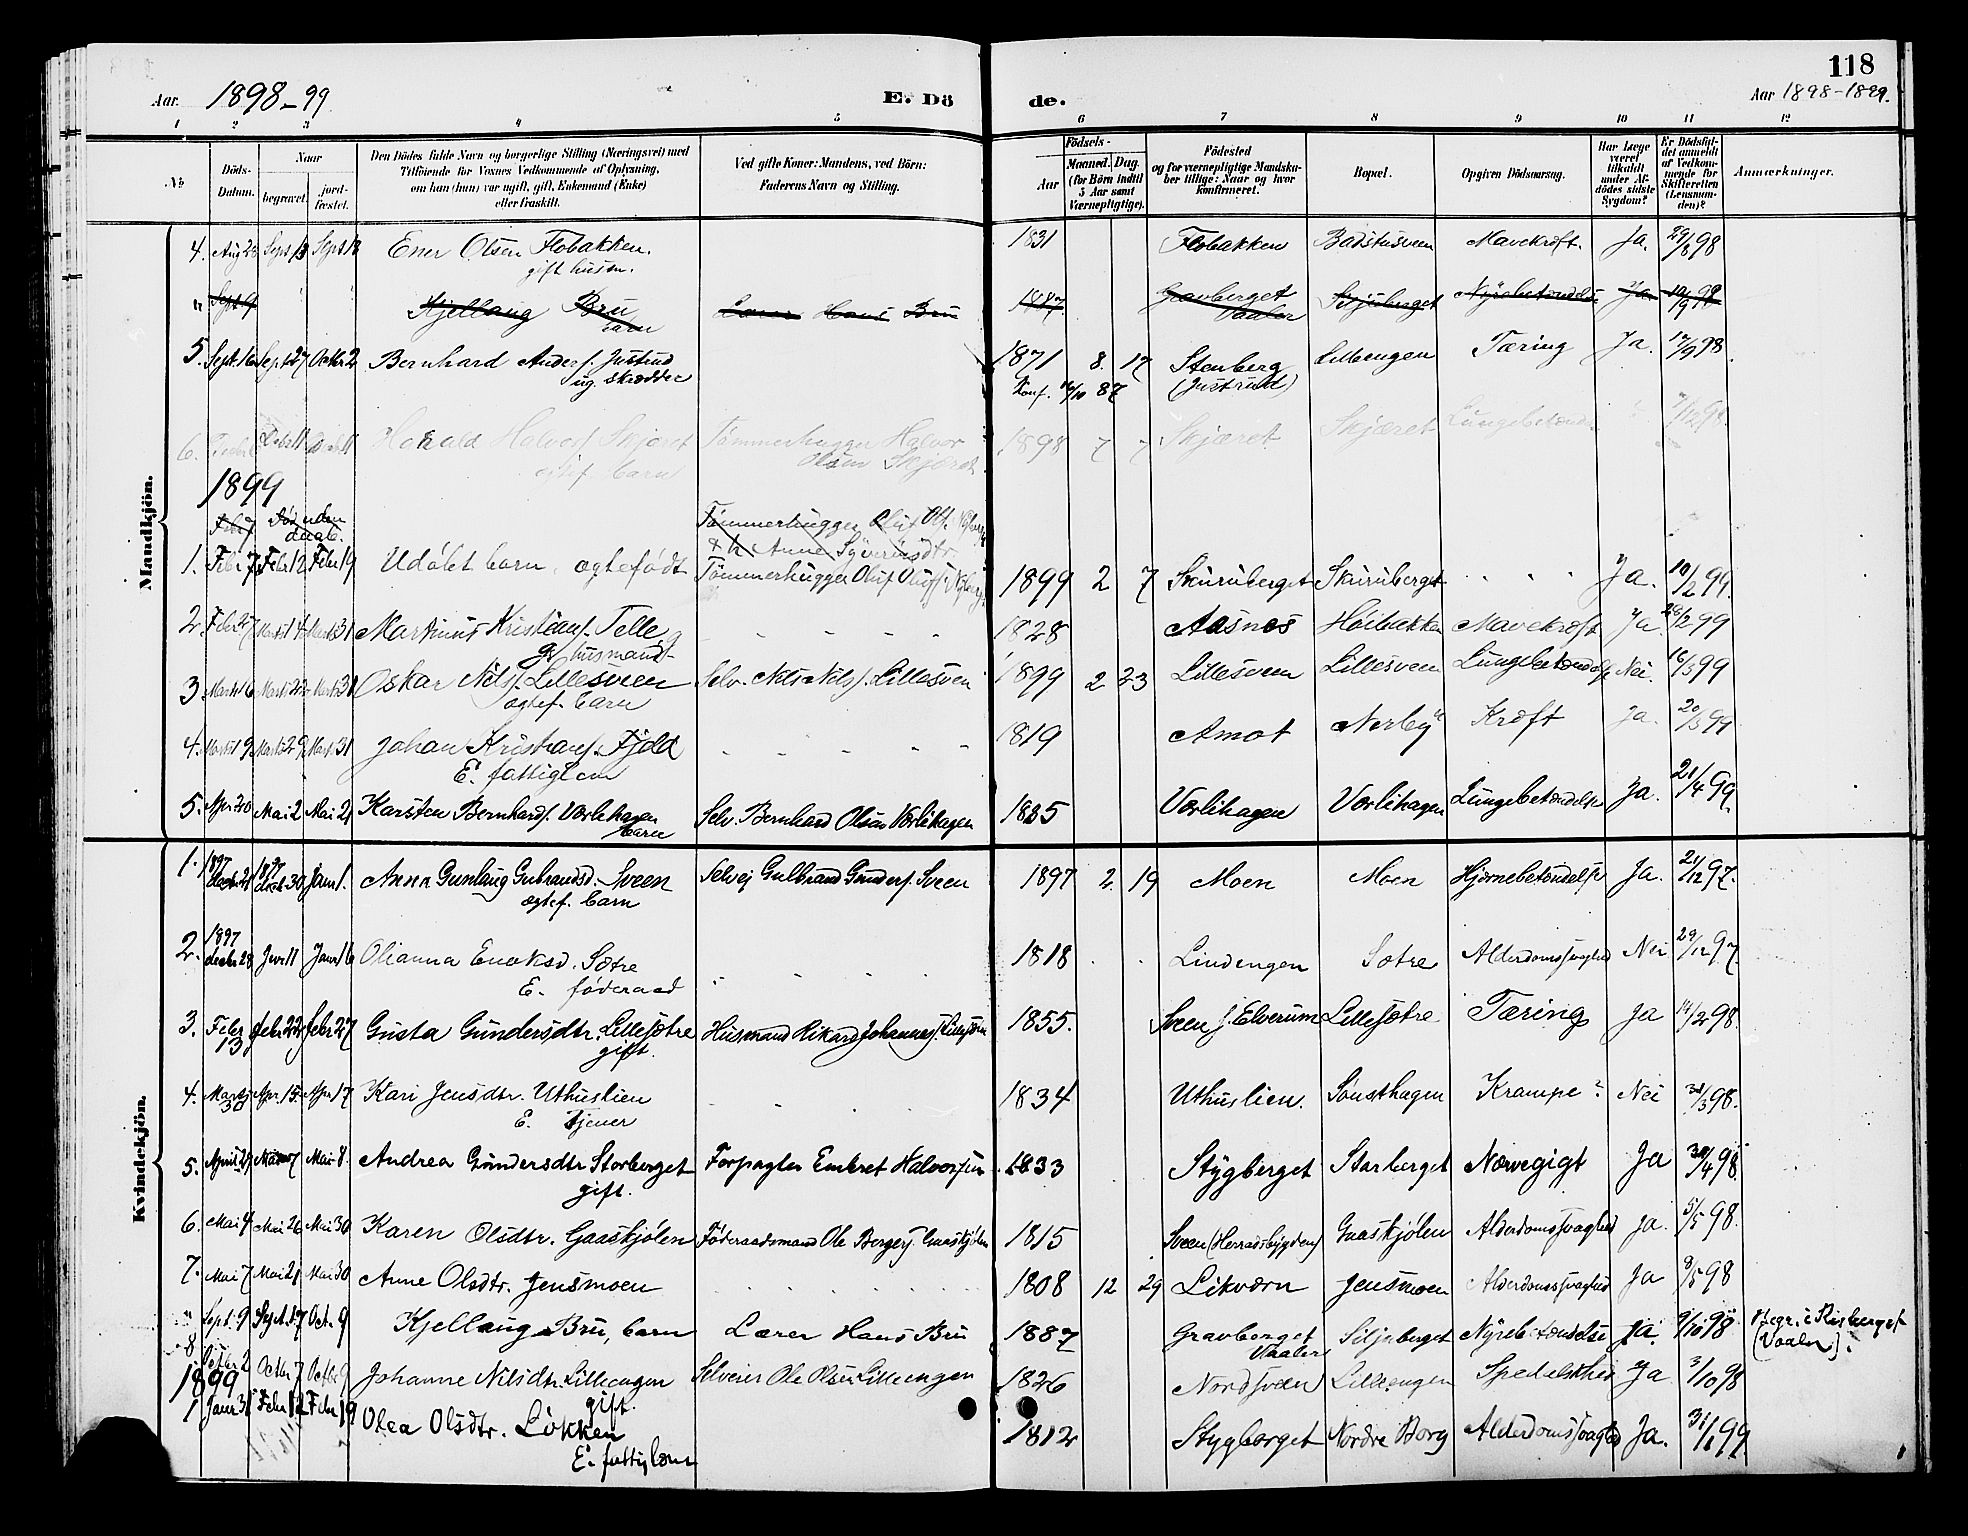 118
Aar. 1898-99
E. Dö de.
Aar 1898-1899.
1 2 3 4 5 6 7 8 9 10 11 12
No
Döds-Datum.
Naar
begravet.
jord-fæstet.
Den Dödes fulde Navn og borgerlige Stilling (Næringsvei) med
Tilföiende for Voxnes Vedkommende af Oplysning,
om han (hun) var ugift, gift, Enkemand (Enke)
eller fraskilt.
Ved gifte Koner: Mandens, ved Börn:
Faderens Navn og Stilling.
Födsels-
Aar
Maaned. Dag.
(for Börn indtil
5 Aar samt
Værnepligtige).
Födested
og for værnepligtige Mandska-
ber tillige: Naar og hvor
konfirmeret.
Bopæl.
Opgiven Dödsaarsag.
Har Læge
været
tilkaldt
under Af-
dödes sidste
Sygdom?
Er Dödsfal-
det anmeldt
af Vedkom-
mende for
Skifteretten
(Lensman-
den)?
Anmærkninger.
Mandkjön.
4. Aug 23 Sept 13 Sept 13 Ener Olsen Flobakken. 1831 Flobakken Badstusveen Mavekræft. Ja. 29/8 98
gift husm.
" Sept 9 Kjellaug Bru Lærer Hans Bru 1887 Gravberget Siljuberget Nyrebetændelse Ja 10/9 98
barn Vaaler
5. Sept. 16 Sept 27 Octbr 2 Bernhard Anders. Justrud 1871 8. 17 Stenberg Lilleengen Tæring Ja. 17/9 98
ug. skrædder Konf. 16/10 87 (Justrud)
6. Decbr Decbr 11 Decbr 11 Harald Halvors. Skjæret Tømmerhugger Halvor 1898 7 7 Skjæret Skjæret Lungebetænd. 7/12 98.
ægtef. barn Olsen Skjæret
1899
Feb. 7 Død uden Tømmerhugger Oluf Ols.
daab. & h. Anne Syverinsdtr.
1. Febr 7 Febr 12 Febr 19 Udøbt barn, ægtefødt Tømmerhugger Oluf Oluf. 1899 2 7 Skuruberget Skuruberget " " " Ja. 10/2 99.
2. Febr. 27 Marts 14 Marts 31 Martinus Kristians. Telle 1828 Aasnes Høibakken Mavekræft Ja. 28/2 99
g. husmand
3 Marts 16 Marts 22 Marts 31 Oskar Nils. Lillesveen Selv. Nils Nils. Lillesven 1899 2 23 Lillesveen Lillesveen Lungebetændelse Nei. 16/3 99
ægtef. barn
4. Marts 19 Marts 29 Marts 31 Johan Kristians. Fjeld 1819 Amot Nerby Kræft Ja. 20/3 99
E. fattiglem
5. Apr. 20 Mai 2 Mai 21 Karsten Bernhards. Vorlihagen Selv. Bernhard Olsen Vorlihagen 1885 Vorlihagen Vorlihagen Lungebetændelse Ja. 21/4 99.
barn
Kvindekjön.
1. 1897 decbr 21 1897 decbr 30 Janr 1. Anna Gunlaug Gubrandsd. Sveen Selvej Gulbrand Gunders. Sveen 1897 2. 19 Moen Moen Hjernebetændelse Ja. 21/12 97.
ægtef. barn
2. 1897 decbr 28 Janr 11 Janr 16 Olianna Enoksd. Sætre 1818 Lindengen Sætre Alderdomssvaghed Nei 29/12 97
E. føderaad
3. Febr 13 febr 22 febr 27 Gusta Gundersdtr. Lillesætre Husmand Rikard Johannes. Lillesætre 1855. Sveen i. Elverum Lillesætre Tæring Ja 14/2 98.
gift.
4. Marts 30 Apr. 15. Apr. 17 Kari Jensdtr. Uthuslien 1834 Uthuslien. Sønsthagen Krampe? Nei 31/3 98.
E. tjener
5. April. 29 Mai 7 Mai 8. Andrea Gundersdtr Storberget Forpagter Embret Halvorsen 1833 Stygberget Storberget Nervegigt Ja 30/4 98
gift.
6. Mai 4 Mai 26 Mai 30 Karen Olsdtr. Gaaskjølen Føderaadsmand Ole Bergers. Gaaskjølen 1815 Sveen (Herradsbygden) Gaaskjølen Alderdomssvaghed Ja. 5/5 98.
7. Mai 7 Mai 21 Mai 30 Anne Olsdtr. Jensmoen 1808 12 29 Likværn Jensmoen Alderdomssvaghed Ja 8/5 98
8 Sept. 9 Sept. 17 Oct. 9 Kjellaug Bru, barn Lærer Hans Bru 1887 Gravberget Siljuberget Nyrebetændelse Ja. 9/10 98 Begr. i Risberget
Vaaler (Vaaler).
Octbr 2 Octbr 7 Octbr 9 Johanne Nilsdtr. Lilleengen Selveier Ole Olsen Lilleengen 1826 Nordsveen Lilleengen Spedalskhed Ja 3/10 98
gift.
1899
1 Janr 31 Febr 12 Febr 19 Olea Olsdtr. Løkken 1812 Stygberget Nordre Borg Alderdomssvaghed Ja. 31/1 99
E. fattiglem